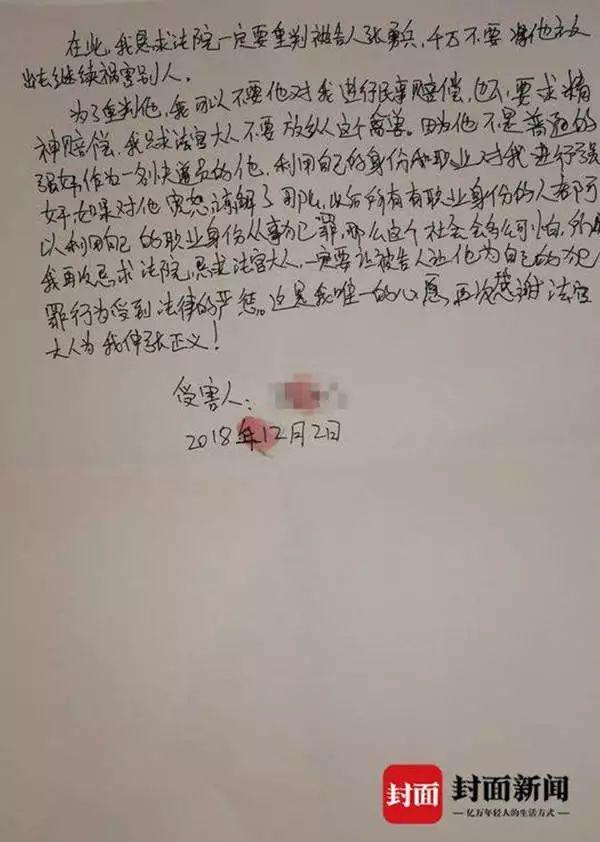 在此，我恳求法院一定要重判被告人张勇兵，千万不要将他放
出去继续祸害别人。
为了重判他，我可以不要他对我进行民事赔偿，也不要求精
神赔偿，我只求法官大人不要放纵这个禽兽。因为他不是普通的
强奸，作为一名快递员的他，利用自己的身份和职业对我进行强
奸，如果对他宽恕谅解了，那么，以后所有有职业身份的人都可
以利用自己的职业身份从事犯罪，那么这个社会会多么可怕，
我再次恳求法院，恳求法官大人，一定要让被告人为他自己的犯
罪行为受到法律的严惩。这是我唯一的心愿，再次感谢法官
大人为我伸张正义！
受害人：
2018年12月2日
封面 封面新闻
亿万年轻人的生活方式